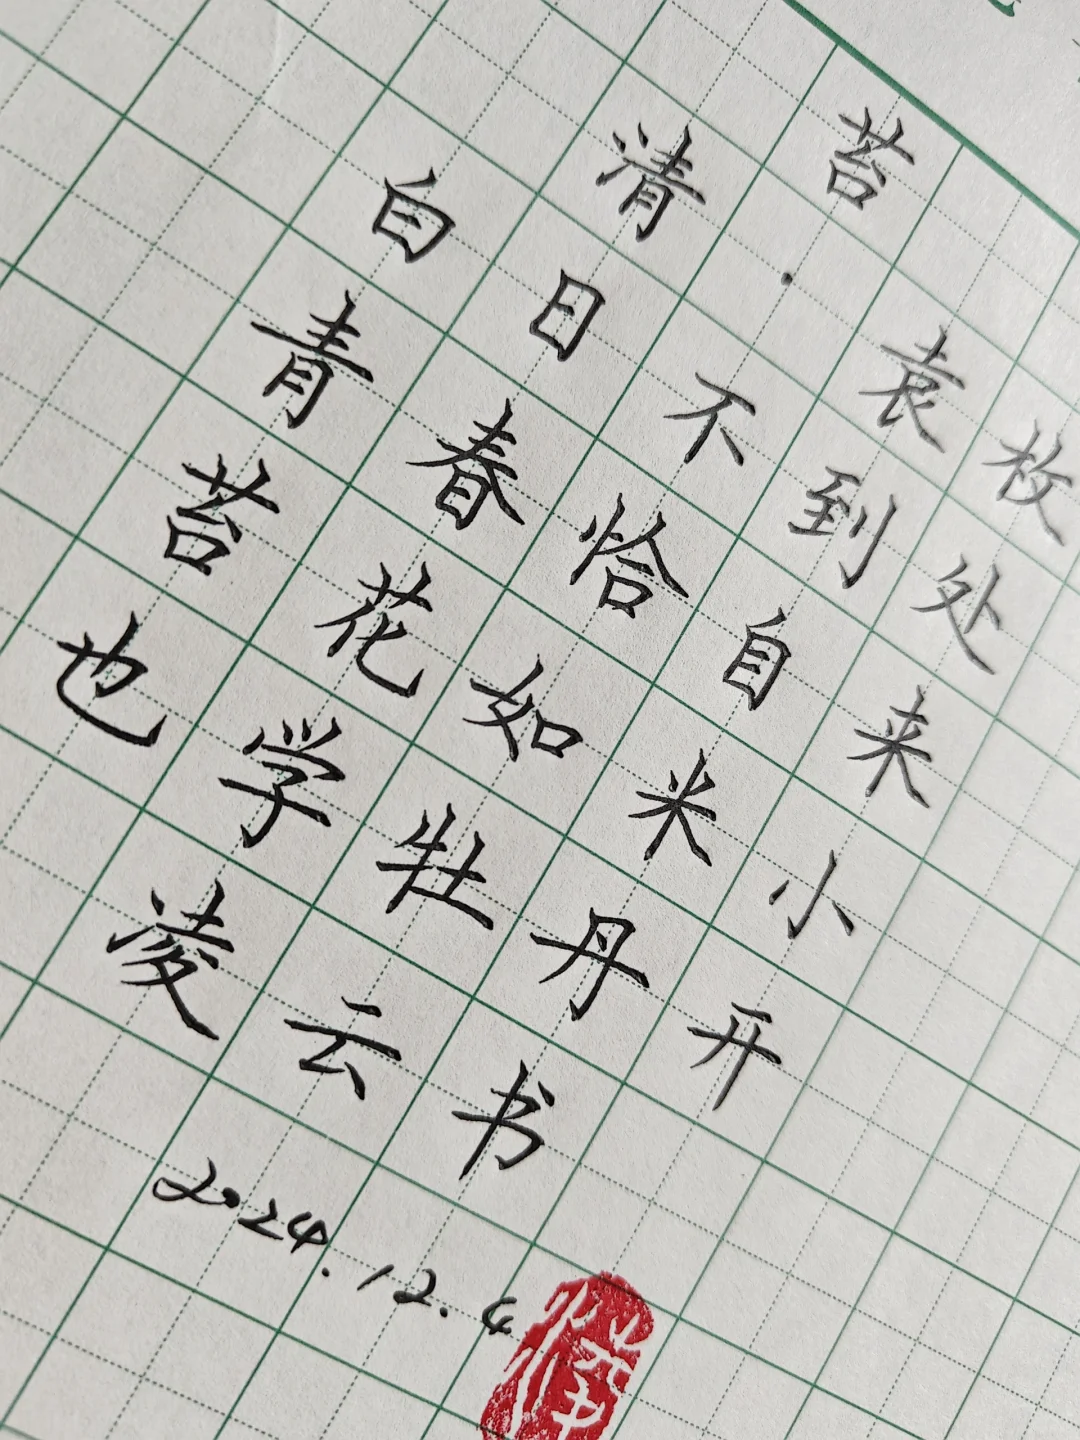 苔
清·袁枚
白日不到处
青春恰自来
苔花如米小
也学牡丹开
凌云书
2024.12.4